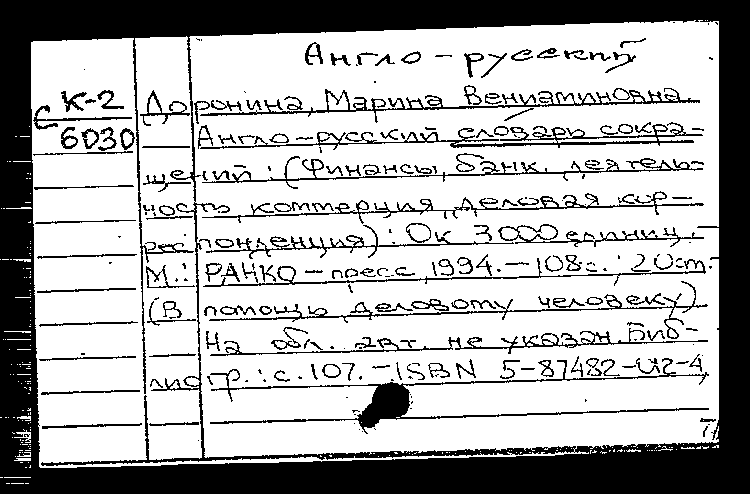 Англо-русский
С К-2 Доронина, Марина Вениаминовна.
6030 Англо-русский словарь сокра-
щений: (Финансы, банк. деятель-
ность, коммерция, деловая кор-
респонденция): Ок 3000 единиц. -
М.: РАНКО-пресс, 1994. - 108с.; 20см. -
(В помощь деловому человеку)
На обл. авт. не указан. Биб-
лиогр.: с. 107. - ISBN 5-87482-